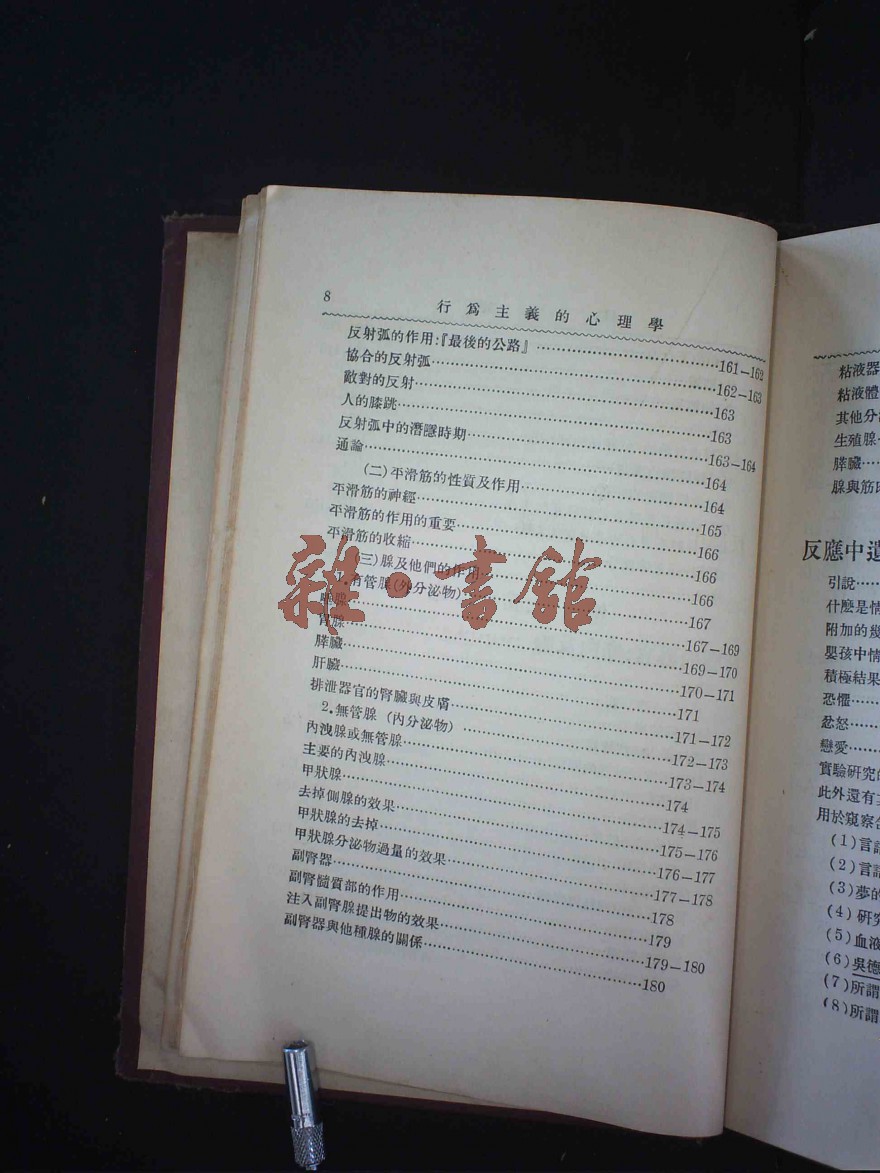 8
行爲主義的心理學
反射弧的作用:『最後的公路』…161—162
協合的反射弧…162—163
敵對的反射…163
人的膝跳…163
反射弧中的潛隱時期…163—164
通論…164
(二)平滑筋的性質及作用…164
平滑筋的神經…165
平滑筋的作用的重要…166
平滑筋的收縮…166
(三)腺及他們的作用…166
1.有管腺(外分泌物)…167
腺…167—169
腺…169—170
膵臟…170—171
肝臟…171
排泄器官的腎臟與皮膚…171—172
2.無管腺(內分泌物)…172—173
內洩腺或無管腺…173—174
主要的內洩腺…174
甲狀腺…174—175
去掉側腺的效果…175—176
甲狀腺的去掉…176—177
甲狀腺分泌物過量的效果…177—178
副腎器…178
副腎髓質部的作用…179
注入副腎腺提出物的效果…179—180
副腎器與他種腺的關係…180
雜·書館
粘液器
粘液體
其他分
生殖腺
膵臟…
腺與筋
反應中遺
引說…
什麼是情
附加的幾
嬰孩中情
積極結果
恐懼…
忿怒…
戀愛…
實驗研究的
此外還有
用於窺察
(1)言
(2)言
(3)夢的
(4)研究
(5)血液
(6)吳德
(7)所謂
(8)所謂